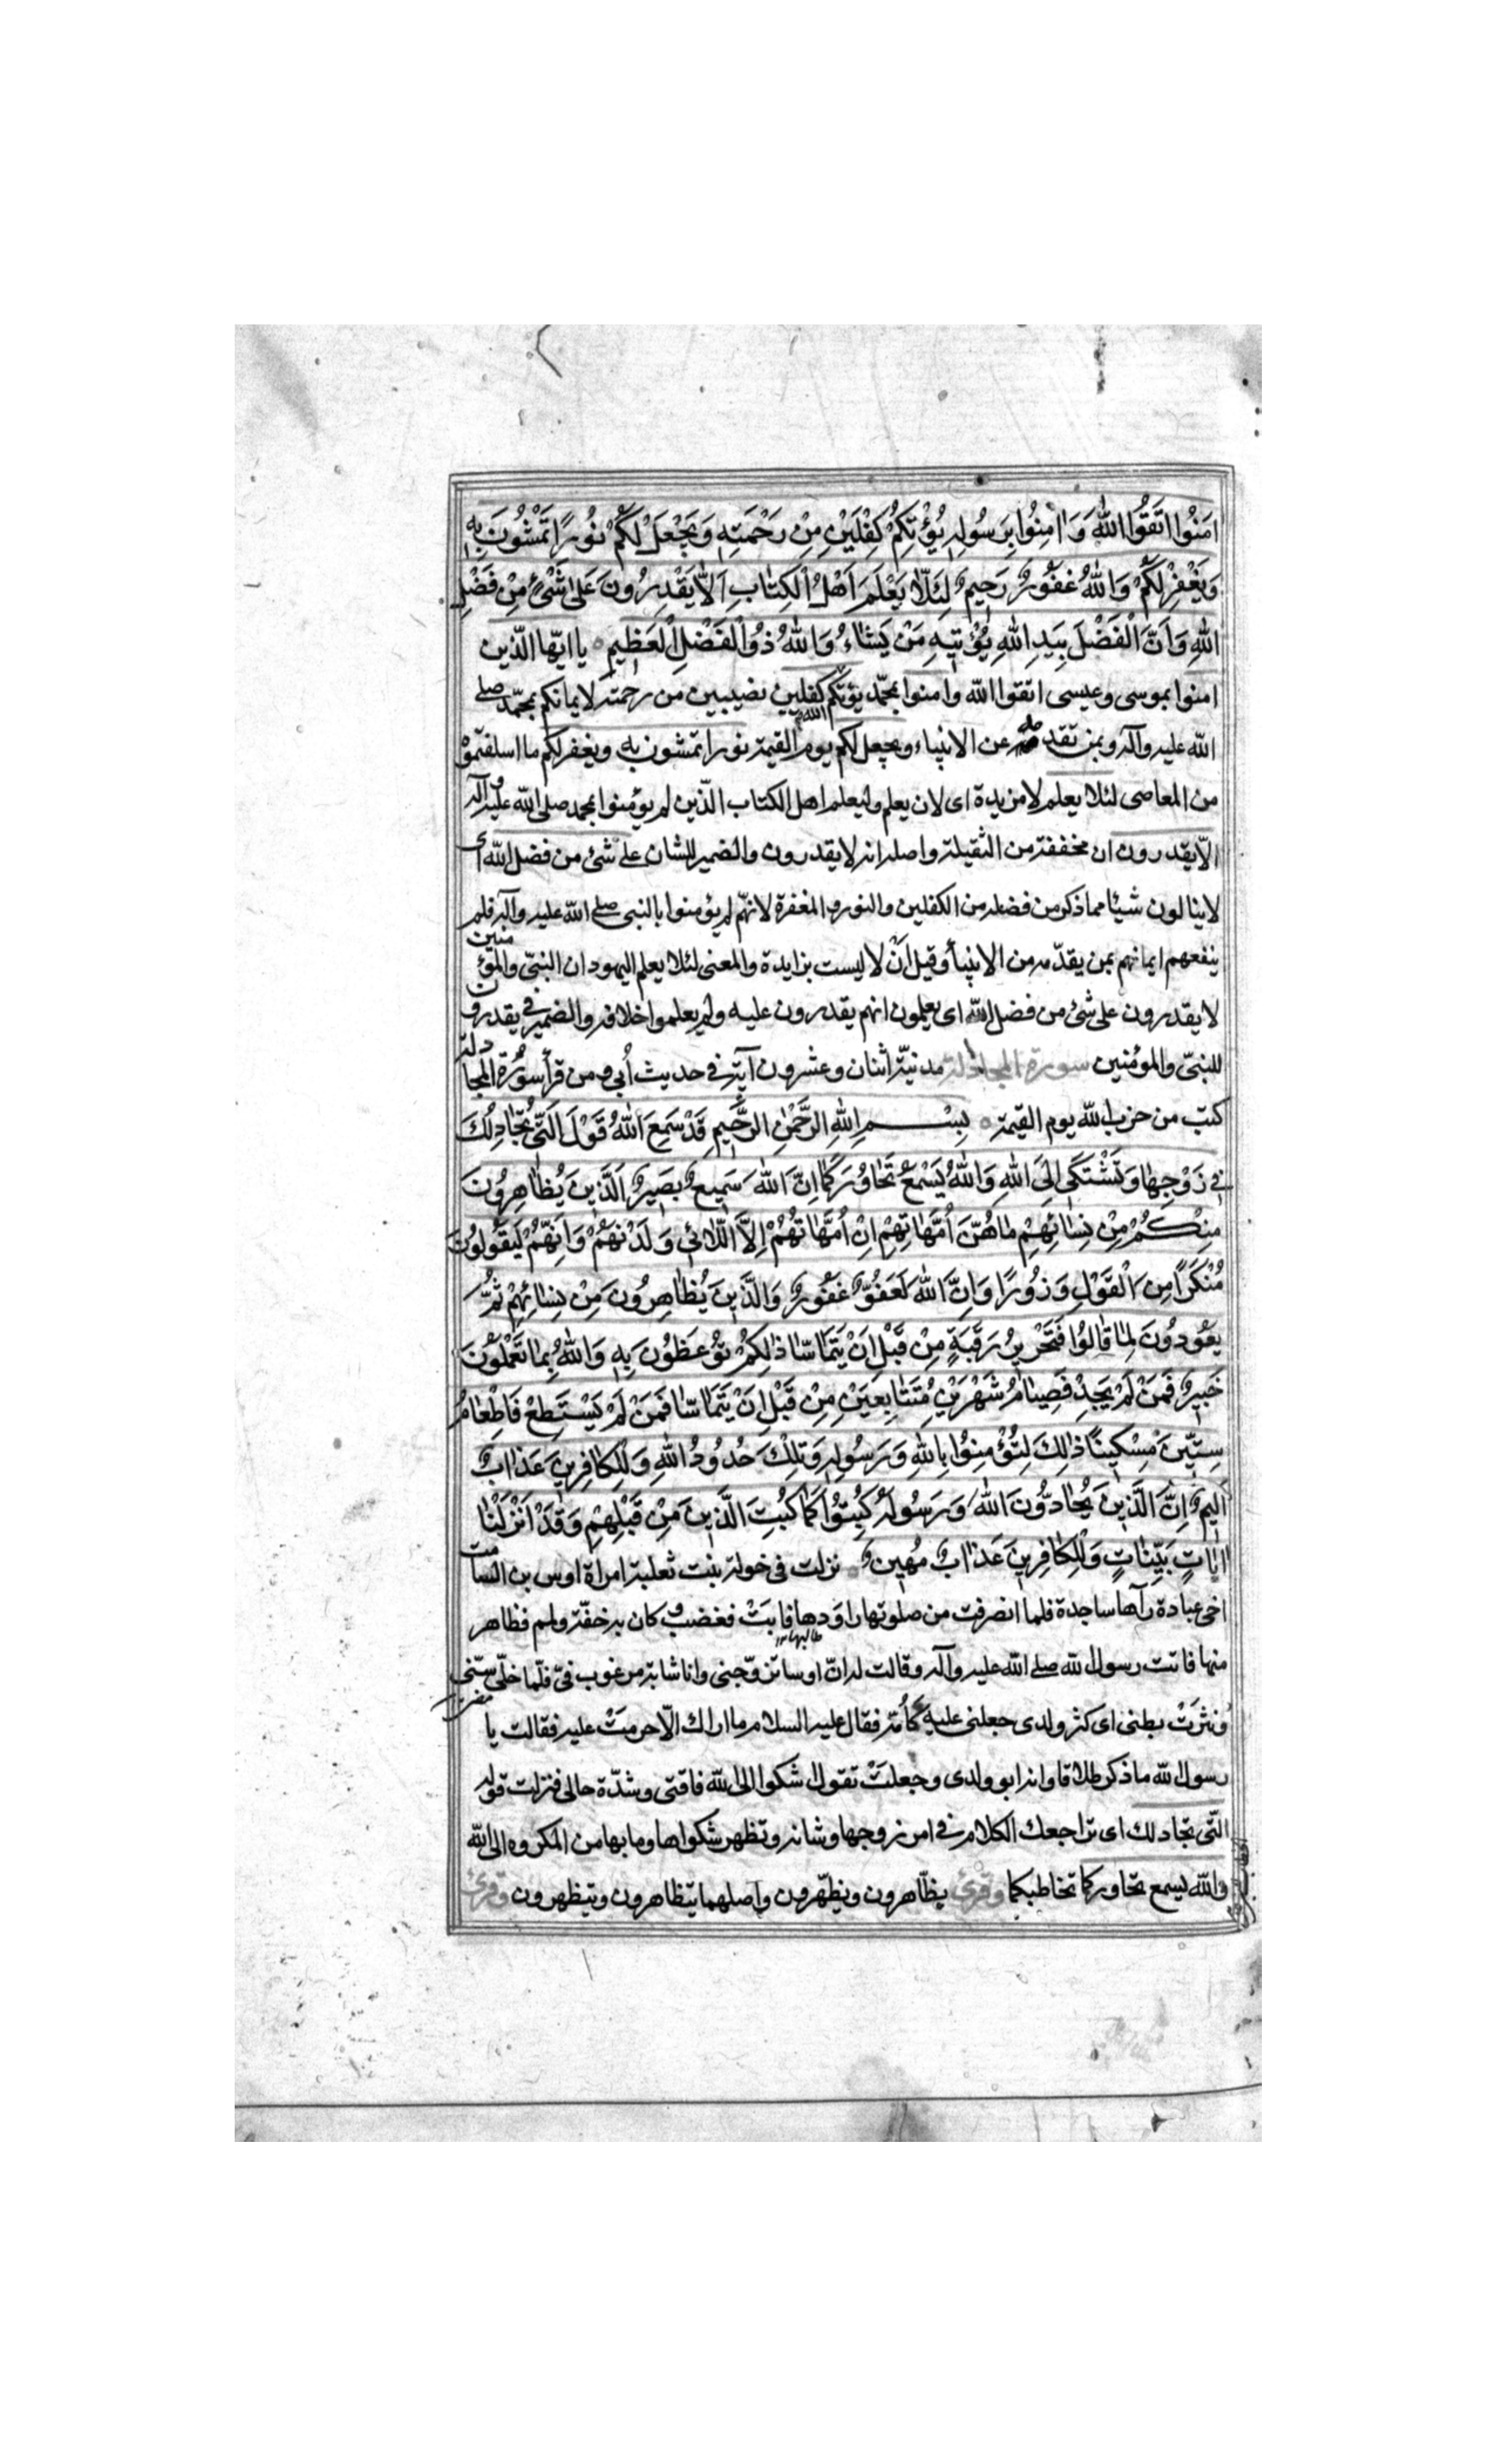 اٰمَنُوا اتَّقُوا اللّٰهَ وَاٰمِنُوا بِرَسُولِهِ يُؤْتِكُمْ كِفْلَيْنِ مِنْ رَحْمَتِهِ وَيَجْعَلْ لَكُمْ نُورًا تَمْشُونَ بِهِ
وَيَغْفِرْ لَكُمْ وَاللّٰهُ غَفُورٌ رَحِيمٌ لِئَلَّا يَعْلَمَ اَهْلُ الْكِتٰابِ اَلّٰا يَقْدِرُونَ عَلٰى شَيْءٍ مِنْ فَضْلِ
اللّٰهِ وَاَنَّ الْفَضْلَ بِيَدِ اللّٰهِ يُؤْتِيهِ مَنْ يَشٰاءُ وَاللّٰهُ ذُو الْفَضْلِ الْعَظِيمِ يا ايّها الّذين
امنوا بموسى وعيسى اتقوا اللّه وامنوا بمحمّد يؤتكم اللّه كفلين نصيبين من رحمته لايمانكم بمحمّد صلى
اللّه عليه وآله وبمن تقدمه من الانبياء ويجعل لكم يوم القيمة نورا تمشون به ويغفر لكم ما اسلفتموه
من المعاصى لئلا يعلم لا مزيدة اى لان يعلم وليعلم اهل الكتاب الّذين لم يؤمنوا بمحمد صلى اللّه عليه وآله
الّا يقدرون ان مخففة من الثقيلة واصله انه لا يقدرون والضمير للشان على شئ من فضل اللّه اى
لا ينالون شيئا مما ذكر من فضله من الكفلين والنور والمغفرة لانهّم لم يؤمنوا بالنبى صلى اللّه عليه وآله فلم
ينفعهم ايمانهم بمن يقدّمه من الانبيأ وقيل انّ لا ليست بزايدة والمعنى لئلا يعلم اليهود ان النبىّ والمؤمنين
لا يقدرون على شئ من فضل اللّه اى يعلمون انهم يقدرون عليه ولم يعلموا خلافه والضمير فى يقدرون
للنبىّ والمؤمنين سورة المجادلة مدنيّة اثنان وعشرون آية فى حديث اُبى ومن قرأ سورة المجادلة
كتب من حزب اللّه يوم القيمة بِسْمِ اللّٰهِ الرَّحْمٰنِ الرَّحِيمِ قَدْ سَمِعَ اللّٰهُ قَوْلَ الَّتِي تُجٰادِلُكَ
فِي زَوْجِهٰا وَتَشْتَكِي اِلَى اللّٰهِ وَاللّٰهُ يَسْمَعُ تَحٰاوُرَكُمٰا اِنَّ اللّٰهَ سَمِيعٌ بَصِيرٌ اَلَّذِينَ يُظٰاهِرُونَ
مِنْكُمْ مِنْ نِسٰائِهِمْ مٰا هُنَّ اُمَّهٰاتِهِمْ اِنْ اُمَّهٰاتُهُمْ اِلَّا اللّٰائِي وَلَدْنَهُمْ وَاِنَّهُمْ لَيَقُولُونَ
مُنْكَرًا مِنَ الْقَوْلِ وَزُورًا وَاِنَّ اللّٰهَ لَعَفُوٌّ غَفُورٌ وَالَّذِينَ يُظٰاهِرُونَ مِنْ نِسٰائِهِمْ ثُمَّ
يَعُودُونَ لِمٰا قٰالُوا فَتَحْرِيرُ رَقَبَةٍ مِنْ قَبْلِ اَنْ يَتَمٰاسّٰا ذٰلِكُمْ تُوعَظُونَ بِهِ وَاللّٰهُ بِمٰا تَعْمَلُونَ
خَبِيرٌ فَمَنْ لَمْ يَجِدْ فَصِيٰامُ شَهْرَيْنِ مُتَتٰابِعَيْنِ مِنْ قَبْلِ اَنْ يَتَمٰاسّٰا فَمَنْ لَمْ يَسْتَطِعْ فَاِطْعٰامُ
سِتِّينَ مِسْكِينًا ذٰلِكَ لِتُؤْمِنُوا بِاللّٰهِ وَرَسُولِهِ وَتِلْكَ حُدُودُ اللّٰهِ وَلِلْكٰافِرِينَ عَذٰابٌ
اَلِيمٌ اِنَّ الَّذِينَ يُحٰادُّونَ اللّٰهَ وَرَسُولَهُ كُبِتُوا كَمٰا كُبِتَ الَّذِينَ مِنْ قَبْلِهِمْ وَقَدْ اَنْزَلْنٰا
اٰيٰاتٍ بَيِّنٰاتٍ وَلِلْكٰافِرِينَ عَذٰابٌ مُهِينٌ نزلت فى خولة بنت ثعلبة امراة اوس بن الصامت
اخى عبادة رآها ساجدة فلما انصرفت من صلوتها راوَدها فابَتْ فغضب وكان به خفّة ولمم فظاهر
منها فاتت رسول اللّه صلى اللّه عليه وآله وقالت له انّ اوسا تزوّجنى وانا شابة مرغوب فىّ فلمّا خلّى سنّى
ونثرَتْ بطنى اى كثر ولدى جعلنى عليه كاُمّه فقال عليه السلام ما اراك الّا حرمتْ عليه فقالت يا
رسول اللّه ما ذكر طلاقا وانه ابو ولدى وجعلَتْ تقول اشكوا الى اللّه فاقتى وشدّة حالى فنزلت قوله
الّتى تجادلك اى تراجعك الكلام فى امر زوجها وشانه وتظهر شكواها وما بها من المكروه الى اللّه
واللّه يسمع تحاوركما تخاطبكما وقرئ يظّاهرون ويظّهّرون واصلهما يتظاهرون ويتظهرون وقرئ